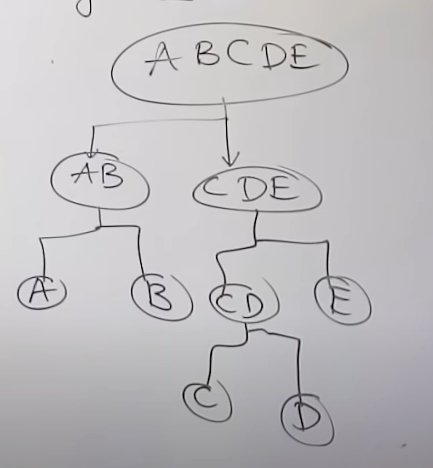 A B C D E
A B
C D E
A
B
C D
E
C
D